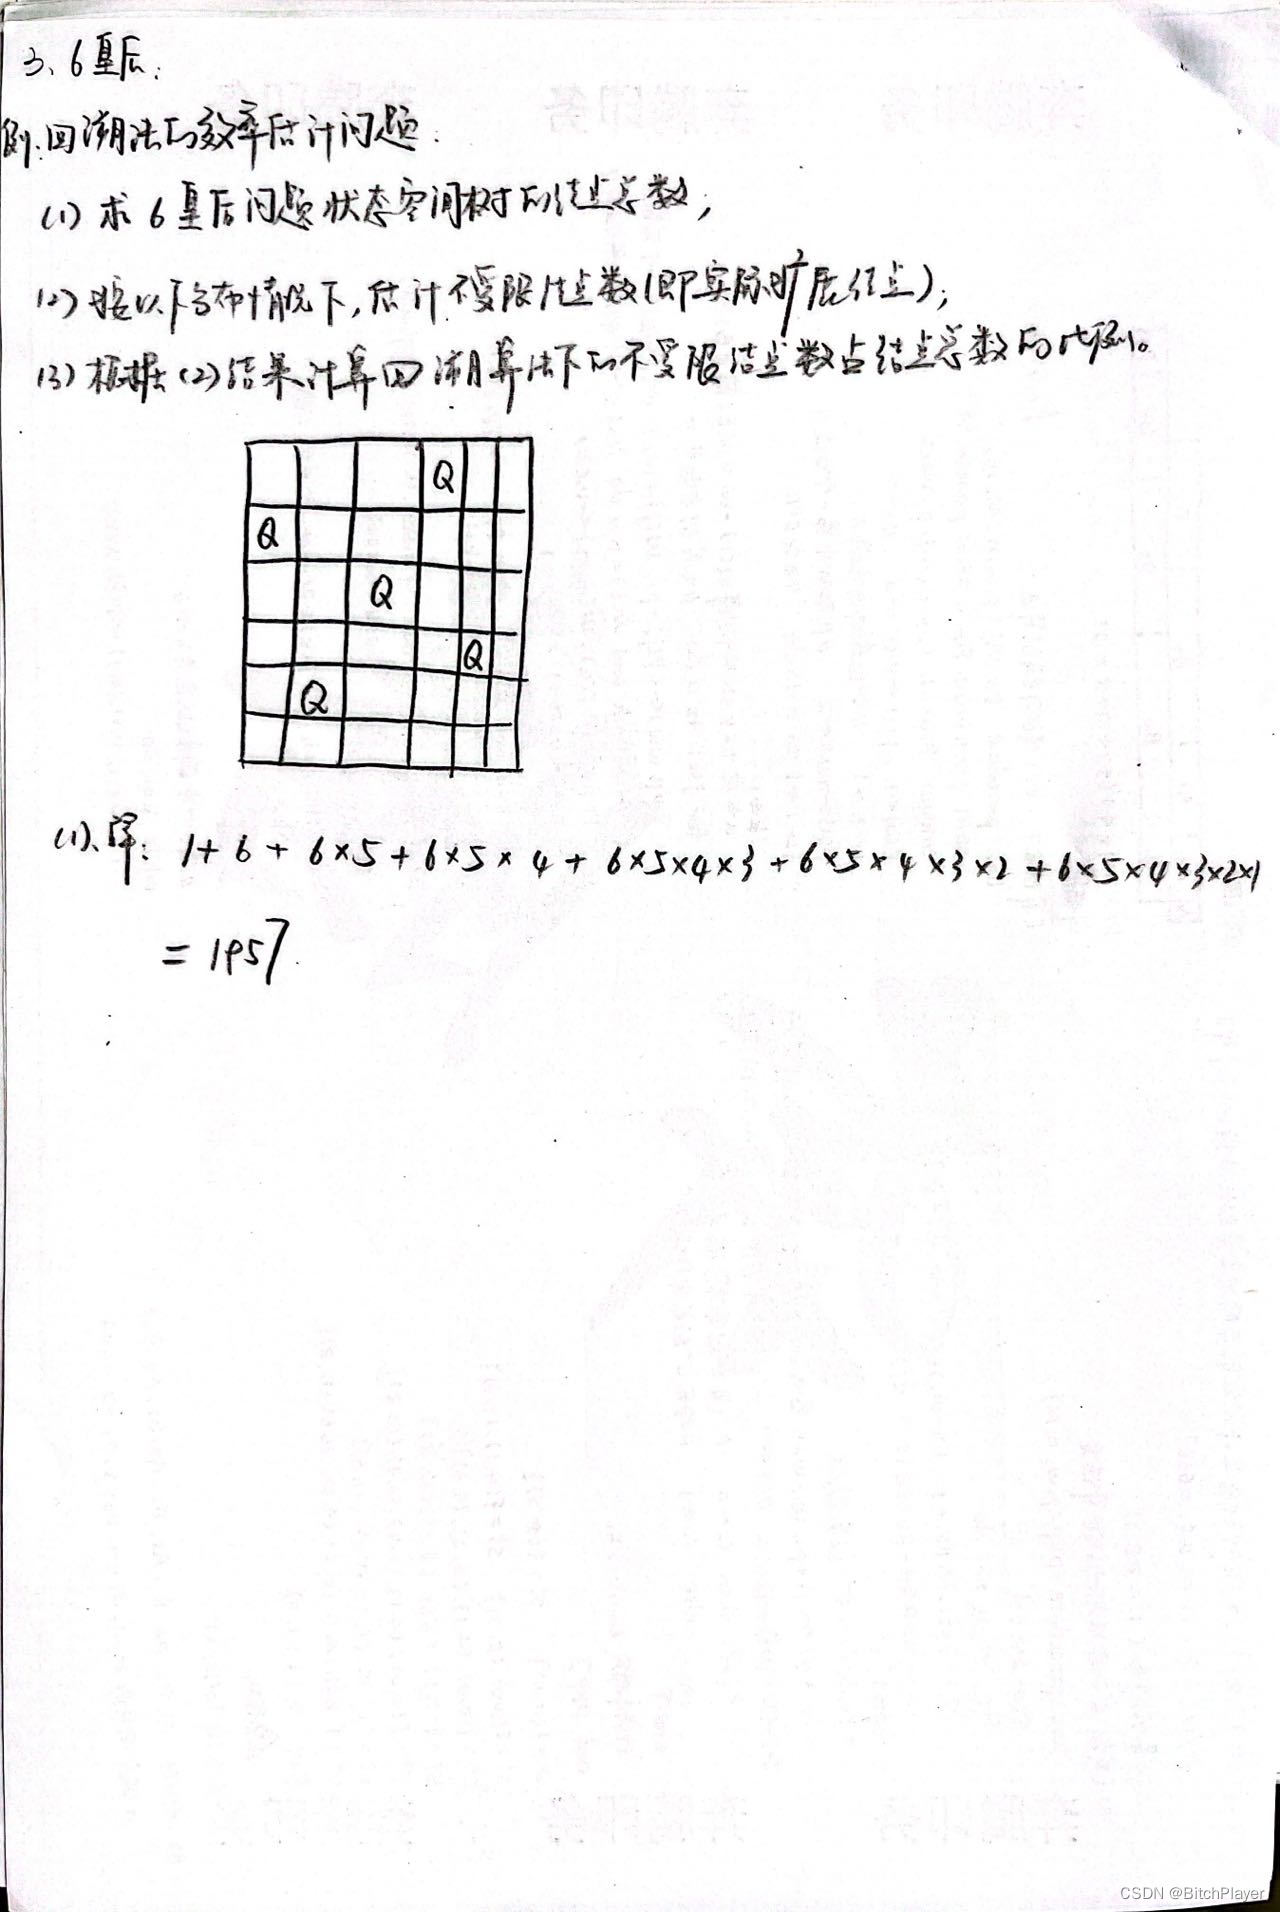 3、6皇后:
例:回溯法的效率估计问题.
(1) 求6皇后问题状态空间树的结点总数;
(2) 按以下分布情况下,估计不受限结点数(即实际扩展结点);
(3) 根据(2)结果计算回溯算法下的不受限结点数占结点总数的比例。
Q
Q
Q
Q
Q
(1)、解: 1+6+6×5+6×5×4+6×5×4×3+6×5×4×3×2+6×5×4×3×2×1
=1957.
CSDN @BitchPlayer